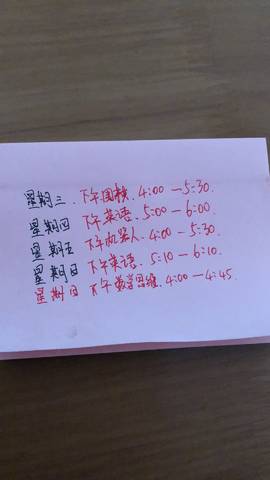 星期三.下午围棋.4:00—5:30.
星期四 下午英语.5:00—6:00.
星期五 下午机器人.4:00—5:30.
星期日 下午英语.5:10—6:10.
星期日 下午数学思维.4:00—4:45.